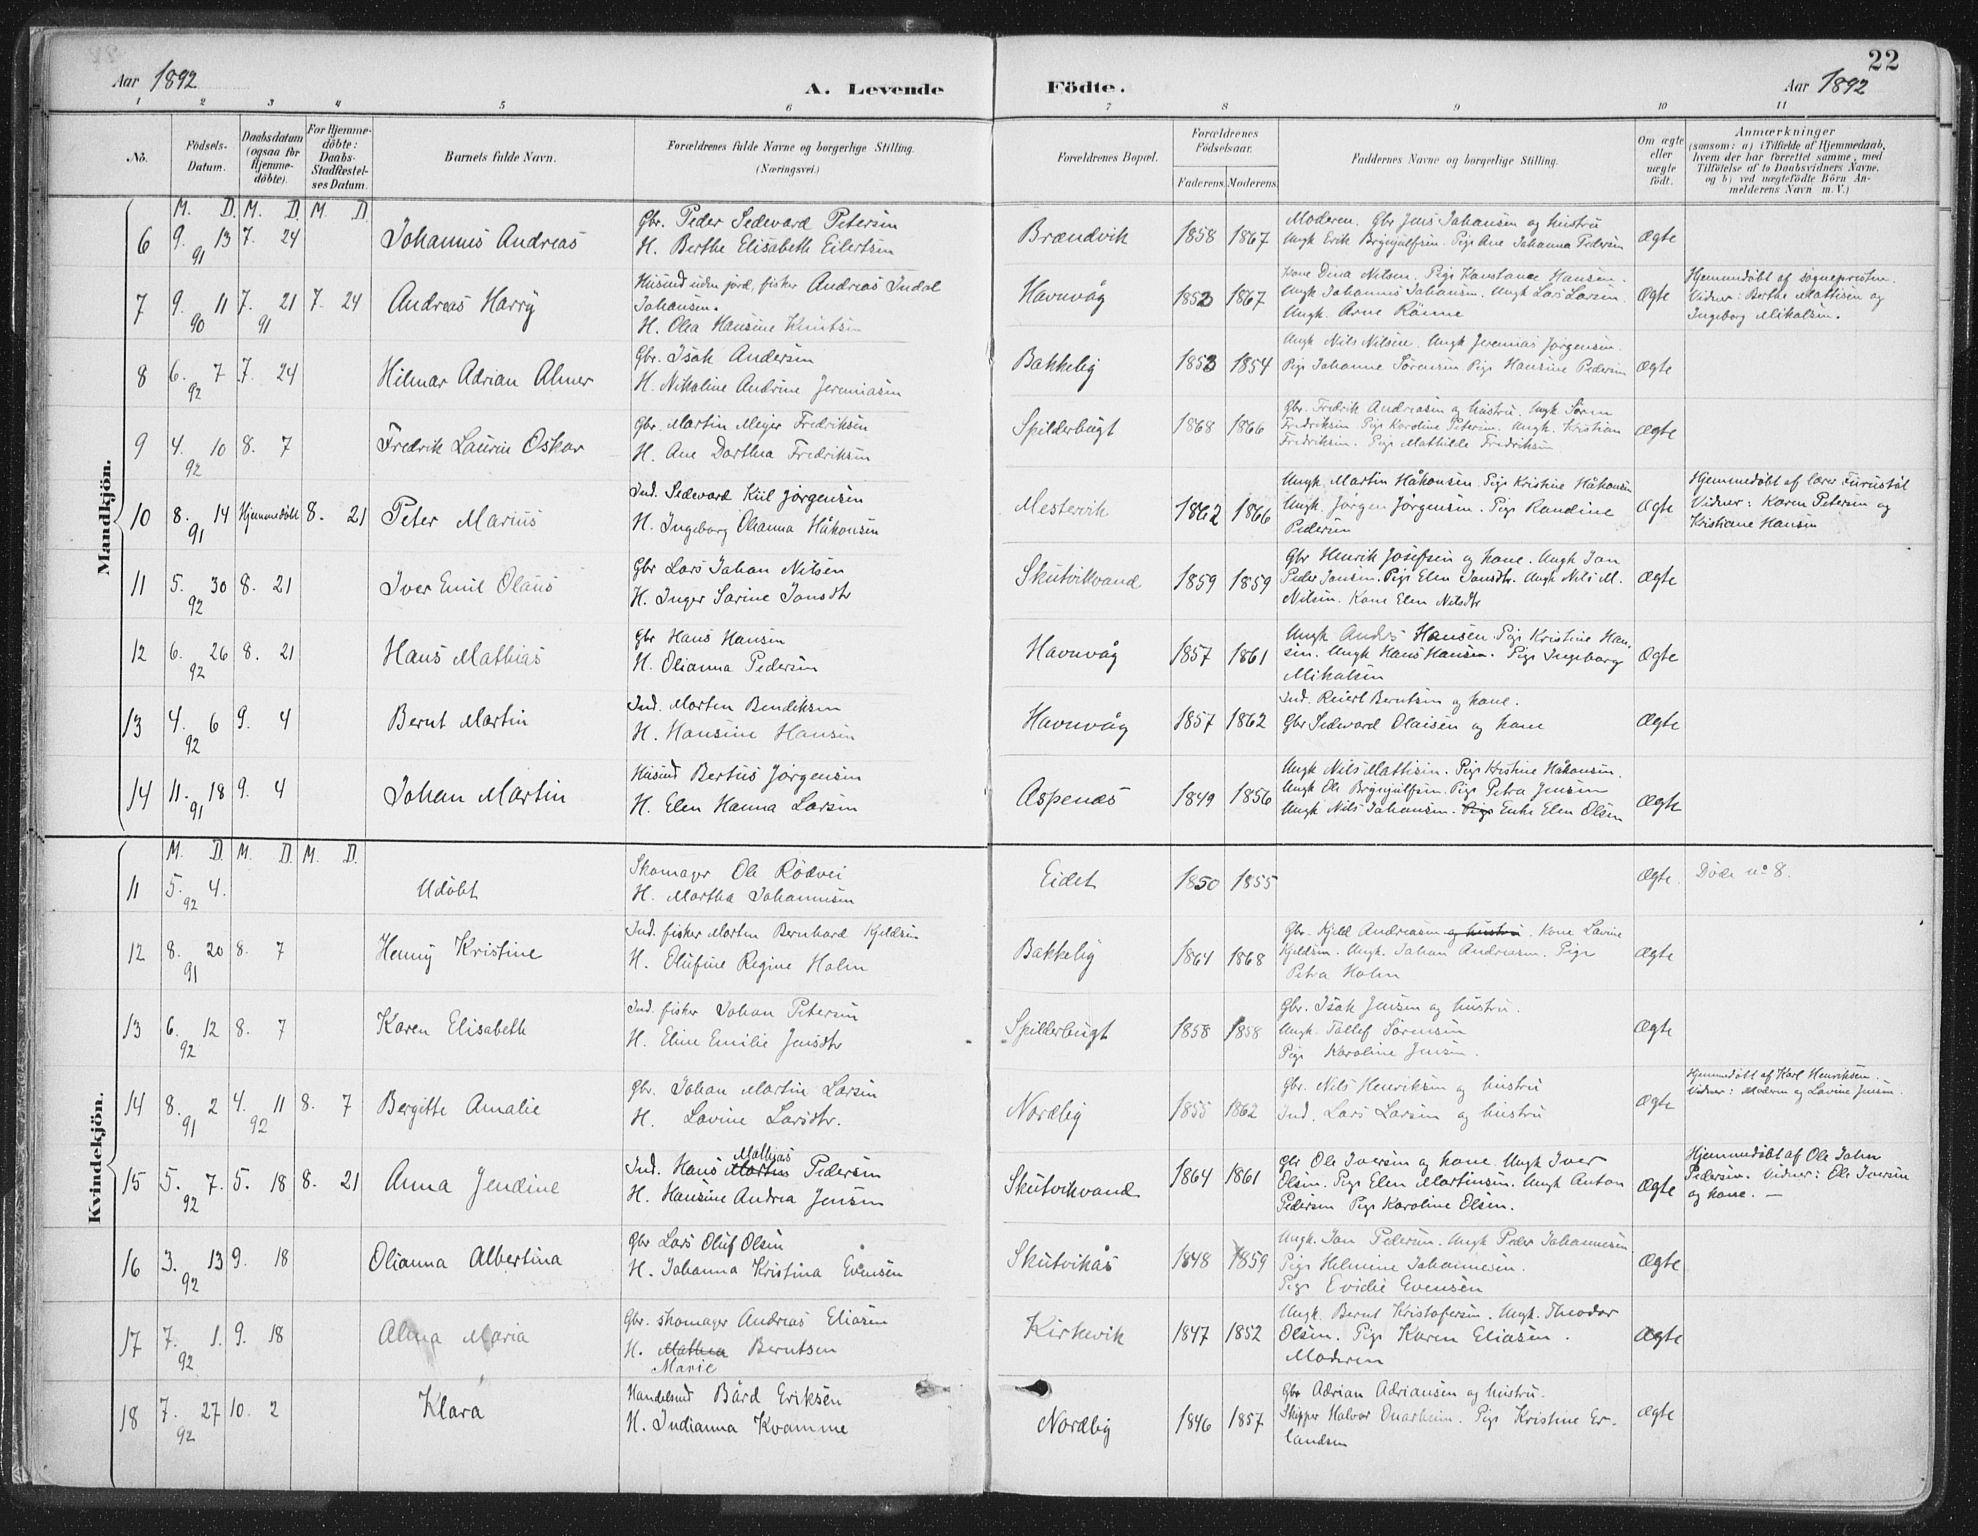 22
Aar 1892
A. Levende
Födte.
Aar 1892
1 2 3 4 5 6 7 8 9 10 11
No.
Födsels-Datum.
Daabsdatum (ogsaa for Hjemme-döbte).
For Hjemme-döbte: Daabs-Stadfæstel-ses Datum.
Barnets fulde Navn.
Forældrenes fulde Navne og borgerlige Stilling. (Næringsvei.)
Forældrenes Bopæl.
Forældrenes Födselsaar.
Faderens. Moderens.
Faddernes Navne og borgerlige Stilling.
Om ægte eller uægte födt.
Anmærkninger
(saasom: a) i Tilfælde af Hjemmedaab,
hvem der har forrettet samme, med
Tilföielse af to Daabsvidners Navne,
og b) ved uægtefödte Börn An-
melderens Navn m. V.)
Mandkjön.
M. D. M. D. M. D.
6 9. 13 91 7. 24 Johannes Andreas
Gbr. Peder Sedevard Petersen
H. Berthe Elisabeth Eilertsen
Brændvik 1858 1867
Moderen. Gbr Jens Johansen og hustru
Ungk Erik Brynjulfsen. Pige Ane Johanna Pedersen
Ægte
7 9. 11 90 7. 21 91 7. 24 Andreas Harry
Husmd uden jord, fisker Andreas Indal
Johansen.
H. Olea Hansine Knutsen
Havnvåg 1852 1867
Kone Dina Nilsen. Pige Konstance Hansen.
Ungk Johannes Johansen. Ungk Lars Larsen
Ungk. Arne Rönne
Ægte
Hjemmedøbt af sognepresten.
Vidner: Berthe Mattisen og
Ingeborg Mikalsen.
8 6. 7 92 7. 24 Hilmar Adrian Almer
Gbr. Isak Andersen
H. Nikoline Andrine Jeremiasen
Bakkelig 1853 1854
Ungk Nils Nilsen. Ungk Jeremias Jørgensen.
Pige Johanne Sørensen Pige Hansine Pedersen
Ægte
9 4. 10 92 8. 7 Fredrik Laurin Oskar
Gbr. Martin Meyer Fredriksen
H. Ane Dorthea Fredriksen
Spilderbugt 1868 1866
Gbr. Fredrik Andreasen og hustru. Ungk Søren
Fredriksen Pige Karoline Petersen. Ungk. Kristian
Fredriksen. Pige Mathilde Fredriksen
Ægte
10 8. 14 91 Hjemmedøbt 8. 21 Peter Marius
Ind. Sedevard Kiil Jørgensen
H. Ingeborg Olianna Håkonsen
Mestervik 1862 1866
Ungk. Martin Håkonsen. Pige Kristine Håkonsen
Ungk. Jørgen Jørgensen. Pige Randine
Pedersen
Ægte
Hjemmedøbt af lærer Furustøl
Vidner: Karen Petersen og
Kristiane Hansen
11 5. 30 92 8. 21 Iver Emil Olaus
Gbr Lars Johan Nilsen
H. Inger Sarine Jonsdtr
Skutvikvand 1859 1859
Gbr Henrik Josefsen og kone. Ungk Jon
Peder Jonsen. Pige Elen Jonsdtr. Ungk Nils M.
Nilsen. Kone Elen Nilsdtr
Ægte
12 6. 26 92 8. 21 Hans Mathias
Gbr Hans Hansen
H. Olianna Pedersen
Havnvåg 1857 1861
Ungk Anders Hansen. Pige Kristine Han-
sen. Ungk Hans Hansen. Pige Ingeborg
Mikalsen
Ægte
13 4. 6 92 9. 4 Bernt Martin
Ind. Morten Bendiksen
H. Hansine Hansen
Havnvåg 1857 1862
Ind. Reiert Berntsen og kone.
Gbr Sedevard Olaisen og kone
Ægte
14 11. 18 91 9. 4 Johan Martin
Husmd Bertus Jørgensen
H. Elen Hanna Larsen
Aspenæs 1849 1856
Ungk Nils Mattisen. Pige Kristine Håkonsen.
Ungk Ole Brynjulfsen. Pige Petra Jensen
Ungk Nils Johansen. Pige Enke Elen Olsen
Ægte
Kvindekjön.
M. D. M. D. M. D.
11 5. 4. 92 Udøbt
Skomager Ole Rödvei
H. Martha Johannesen
Eidet 1850 1855
Ægte. Døde no 8.
12 8. 20 91 8. 7 Henny Kristine
Ind. fisker Morten Bernhard Kjeldsen
H. Olufine Regine Holm
Bakkelig 1864 1868
Gbr. Kjeld Andreasen og hustru. Kone Lavine
Kjeldsen. Ungk. Johan Andreasen. Pige
Petra Holm
Ægte
13 6. 12 92 8. 7 Karen Elisabeth
Ind. fisker Johan Petersen
H. Eline Emilie Jensdtr
Spilderbugt 1858 1858
Gbr. Isak Jensen og hustru.
Ungk. Tollef Sørensen
Pige Karoline Jensen.
Ægte
14 8. 2 91 4. 11 92 8. 7 Bergitte Amalie
Gbr. Johan Martin Larsen
H. Lovine Larsdtr.
Nordbyg 1855 1862
Gbr. Nils Henriksen og hustru
Ind. Lars Larsen og hustru
Ægte
Hjemmedøbt af Karl Henriksen.
Vidner: Moderen og Lovine Jensen.
15 5. 7. 92 5. 18 8. 21 Anna Jendine
Ind. Hans Martin Mathias Pedersen
H. Hansine Andrea Jensen
Skutvikvand 1864 1861
Gbr Ole Iversen og kone. Ungk Iver
Olsen. Pige Elen Martinsen. Ungk Anton
Pedersen Pige Karoline Olsen.
Ægte
Hjemmedøbt af Ole John
Pedersen. Vidner: Ole Iversen
og kone. —
16 3. 13 92 9. 18 Olianna Albertina
Gbr Lars Oluf Olsen
H. Johanna Kristina Evensen
Skutvikås 1848 1859
Ungk. Jon Pedersen. Ungk Peder Johannesen
Pige Helmine Johannesen.
Pige Evidie Evensen
Ægte
17 7. 1. 92 9. 18 Alma Maria
Gbr. skomager Andreas Eliasen
H. Mathea Berntsen
Marie
Kirkevik 1847 1852
Ungk. Bernt Kristofersen. Ungk. Theodor
Olsen. Pige Karen Eliasen.
Moderen
Ægte
18 7. 27 92 10. 2 Klara
Handelsmd Bård Eriksen
H. Indianna Kvamme
Nordbyg 1846 1857
Gbr Adrian Adriansen og hustru.
Skipper Halvor Onarheim. Pige Kristine Er-
landsen
Ægte